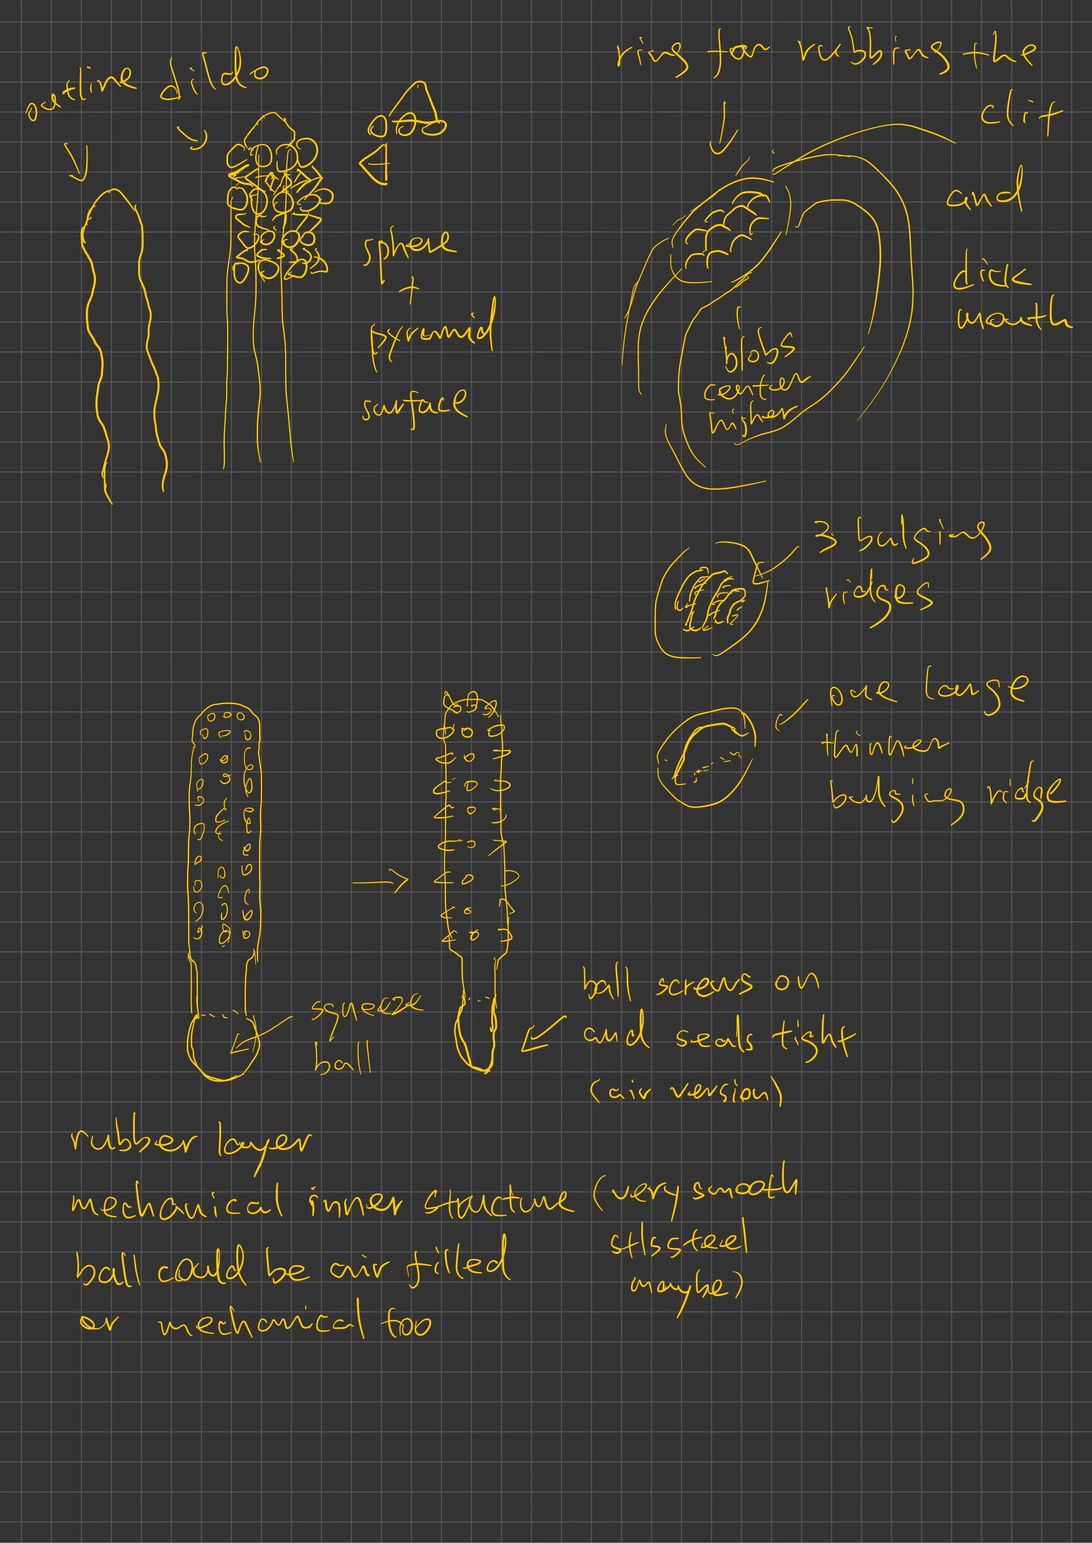 outline dildo
sphere
+
pyramid
surface
ring for rubbing the
clit
and
dick
mouth
blobs
center
higher
3 bulging
ridges
one large
thinner
bulging ridge
squeeze
ball
ball screws on
and seals tight
(air version)
rubber layer
mechanical inner structure (very smooth
stlssteel
maybe)
ball could be air filled
or mechanical too